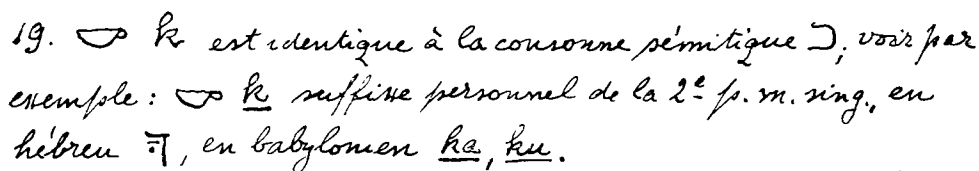 19. 𓎡 k est identique à la consonne sémitique כ; voir par
exemple: 𓎡 k suffixe personnel de la 2e p. m. sing., en
hébreu ךָ, en babylonien ka, ku.